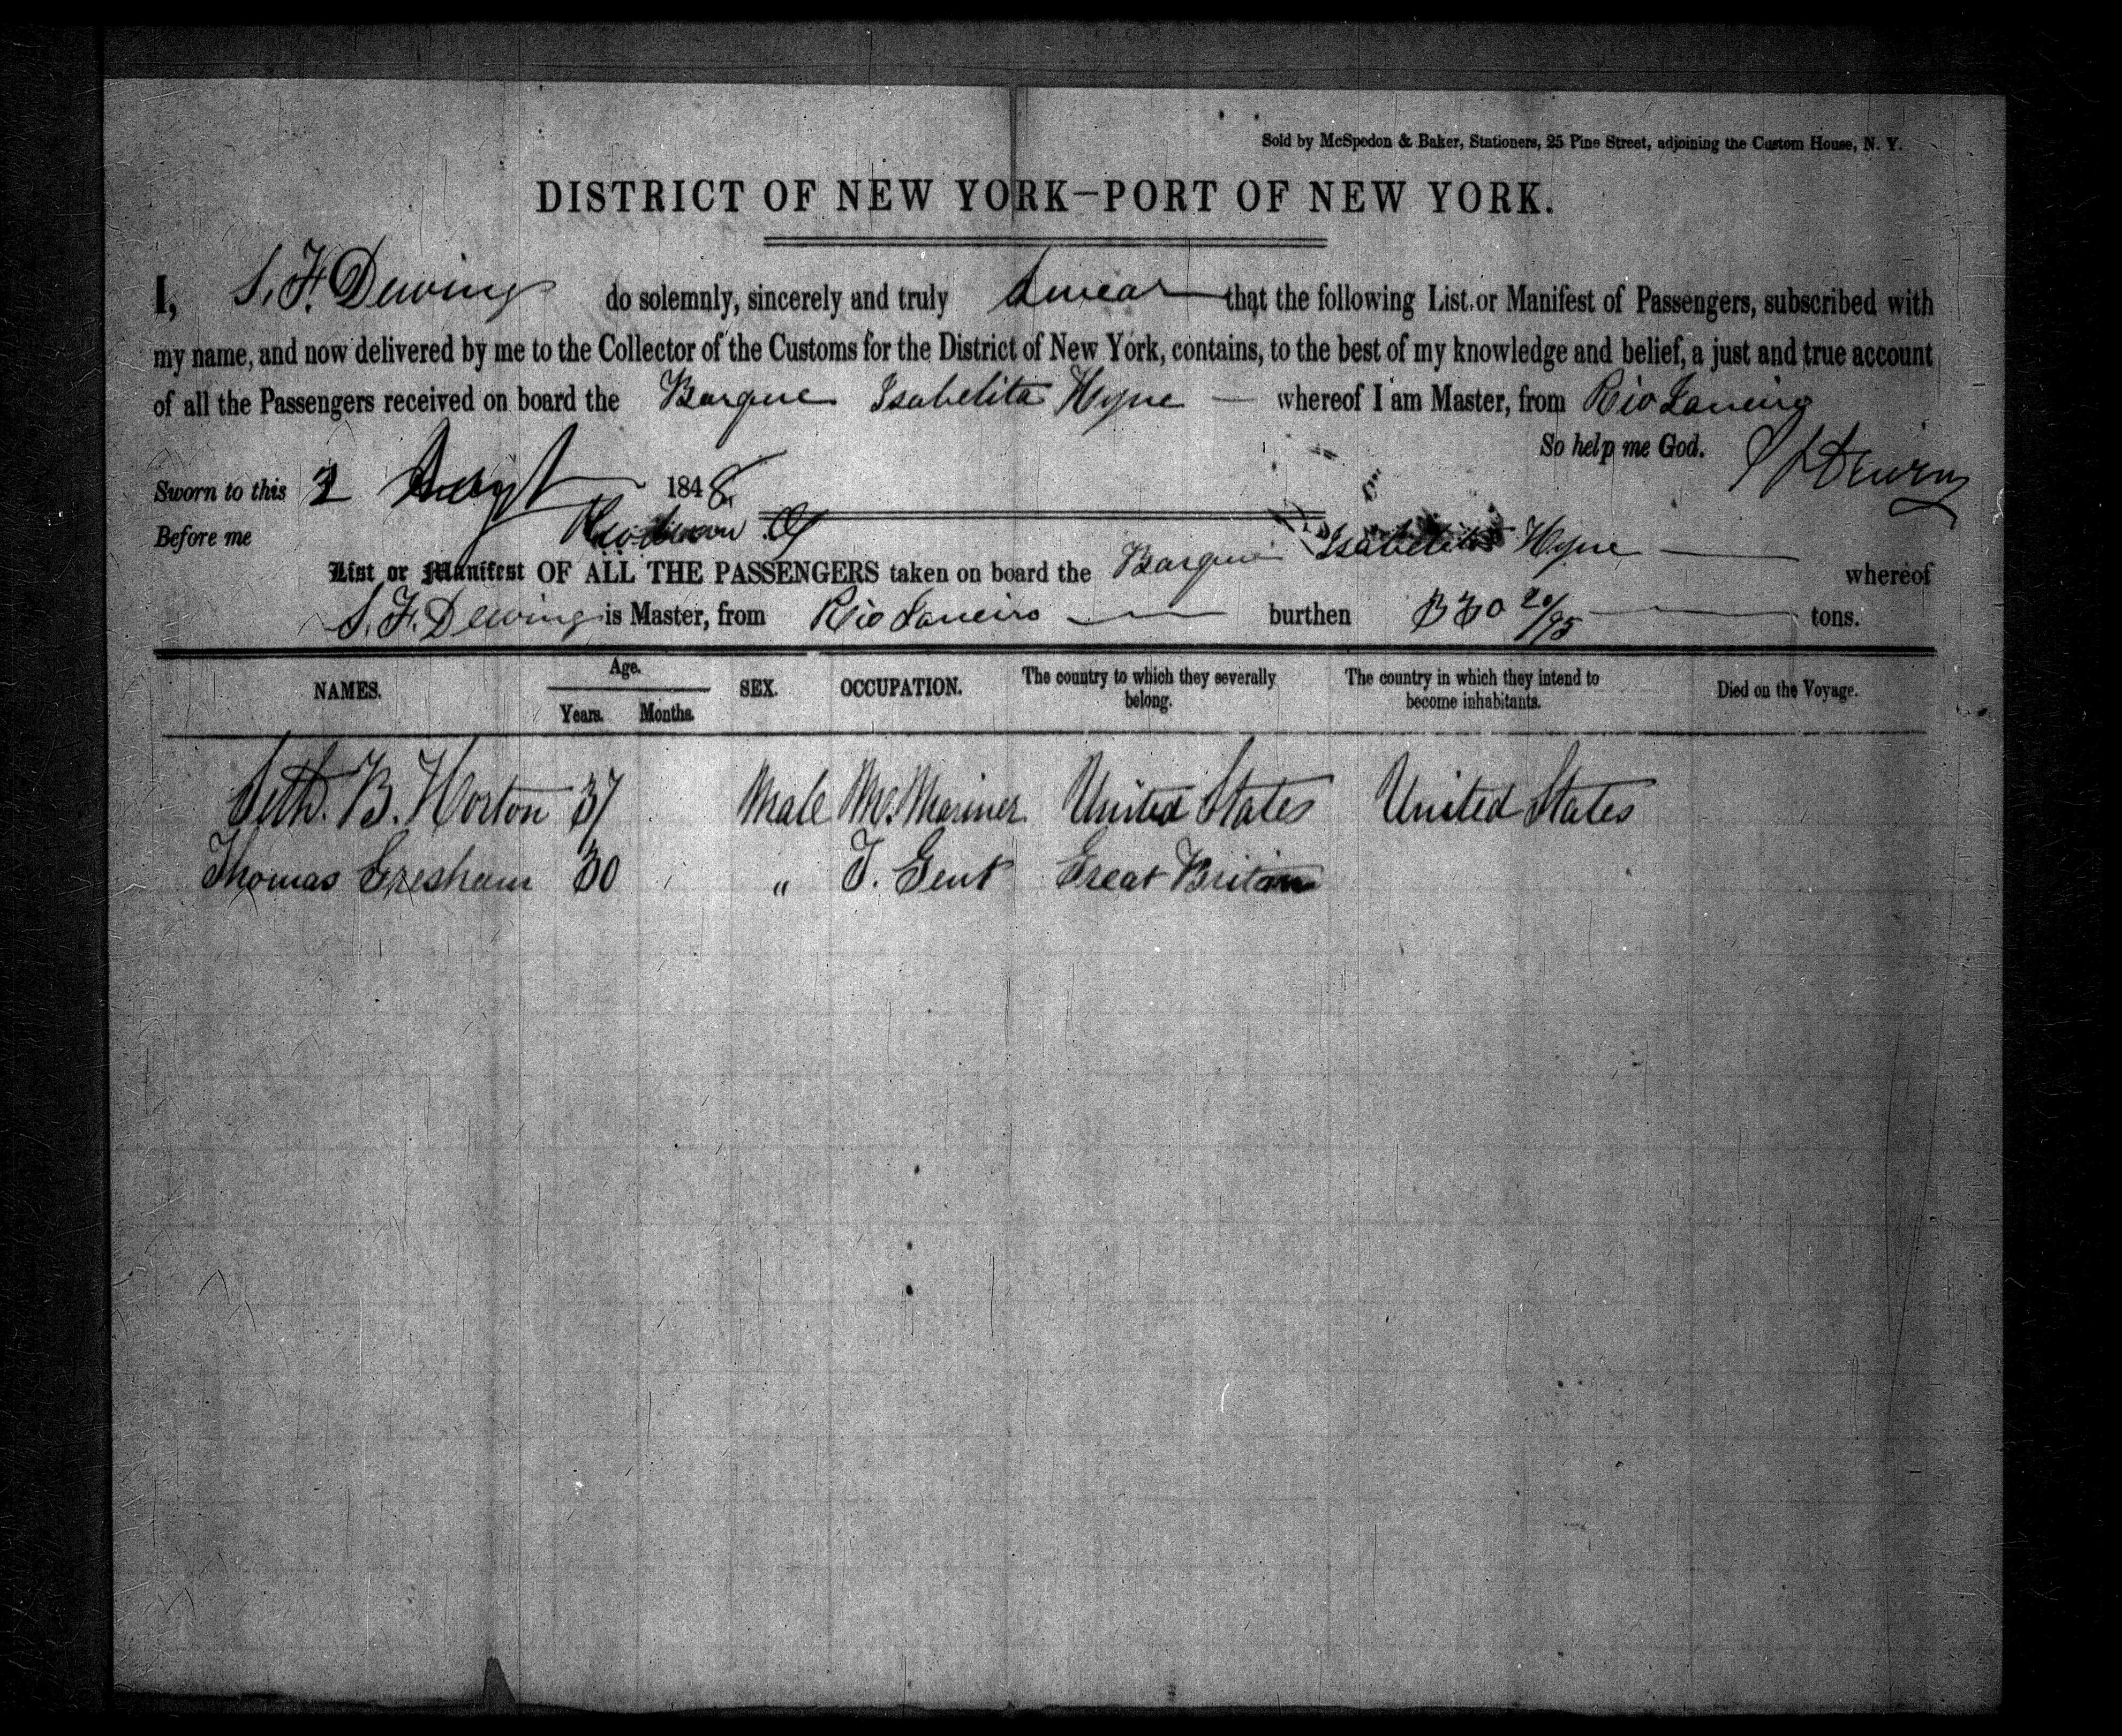 Sold by McSpedon & Baker, Stationers, 25 Pine Street, adjoining the Custom House, N. Y.
DISTRICT OF NEW YORK—PORT OF NEW YORK.
I, S. F. Dewing do solemnly, sincerely and truly Swear that the following List or Manifest of Passengers, subscribed with
my name, and now delivered by me to the Collector of the Customs for the District of New York, contains, to the best of my knowledge and belief, a just and true account
of all the Passengers received on board the Barque Isabelita Hyne — whereof I am Master, from Rio Janeiro
So help me God. S F Dewing
Sworn to this 2 1848
Before me
List or Manifest OF ALL THE PASSENGERS taken on board the Barque Isabelita Hyne — whereof
S. F. Dewing is Master, from Rio Janeiro — burthen 20/95 — tons.
NAMES. Age. Years. Months. SEX. OCCUPATION. The country to which they severally belong. The country in which they intend to become inhabitants. Died on the Voyage.
Seth. B. Horton 37 Male Mr. Mariner United States United States
Thomas Gresham 30 " J. Gent Great Britain